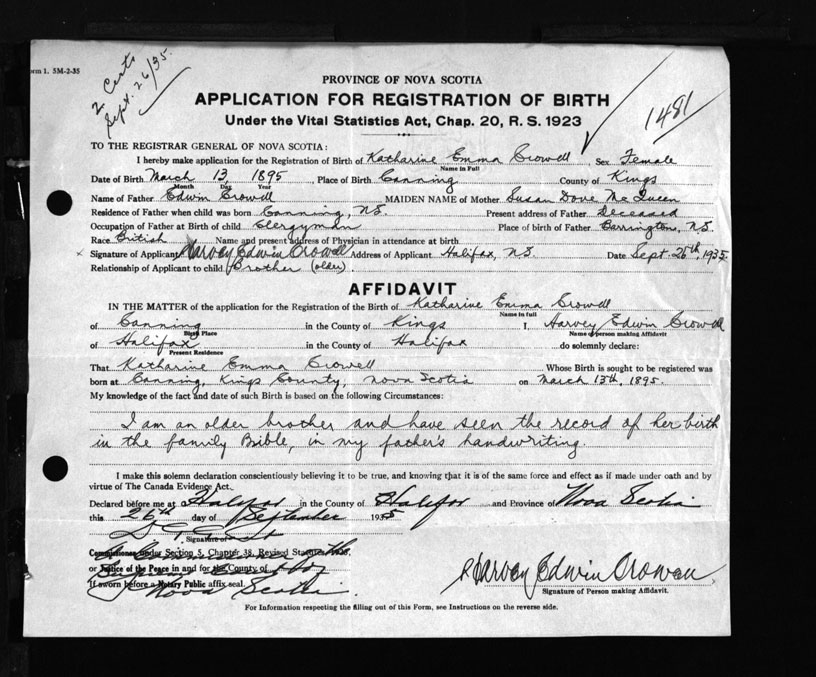 orm 1. 5M-2-35
2 Certs
Sept. 26/35.
1481
PROVINCE OF NOVA SCOTIA
APPLICATION FOR REGISTRATION OF BIRTH
Under the Vital Statistics Act, Chap. 20, R. S. 1923
TO THE REGISTRAR GENERAL OF NOVA SCOTIA:
I hereby make application for the Registration of Birth of Katharine Emma Crowell, Sex Female
Name in Full
Date of Birth March 13, 1895, Place of Birth Canning County of Kings
Month Day Year
Name of Father Edwin Crowell MAIDEN NAME of Mother Susan Dove McQueen
Residence of Father when child was born Canning, N.S. Present address of Father Deceased
Occupation of Father at Birth of child Clergyman Place of birth of Father Barrington, N.S.
Race British Name and present address of Physician in attendance at birth
x Signature of Applicant Harvey Edwin Crowell Address of Applicant Halifax, N.S. Date Sept. 26th, 1935
Relationship of Applicant to child Brother (older).
AFFIDAVIT
IN THE MATTER of the application for the Registration of the Birth of Katharine Emma Crowell
Name in full
of Canning in the County of Kings I, Harvey Edwin Crowell
Birth Place Name of person making Affidavit
of Halifax in the County of Halifax do solemnly declare:
Present Residence
That Katharine Emma Crowell Whose Birth is sought to be registered was
born at Canning, Kings County, Nova Scotia on March 13th, 1895.
My knowledge of the fact and date of such Birth is based on the following Circumstances:
I am an older brother and have seen the record of her birth
in the family Bible, in my father's handwriting.
I make this solemn declaration conscientiously believing it to be true, and knowing that it is of the same force and effect as if made under oath and by
virtue of The Canada Evidence Act.
Declared before me at Halifax in the County of Halifax and Province of Nova Scotia
this 26th day of September 1935
Signature of
Commissioner under Section 5, Chapter 38, Revised Statutes 1923,
or Justice of the Peace in and for the County of
If sworn before a Notary Public affix seal.
Nova Scotia.
Harvey Edwin Crowell
Signature of Person making Affidavit.
For Information respecting the filling out of this Form, see Instructions on the reverse side.